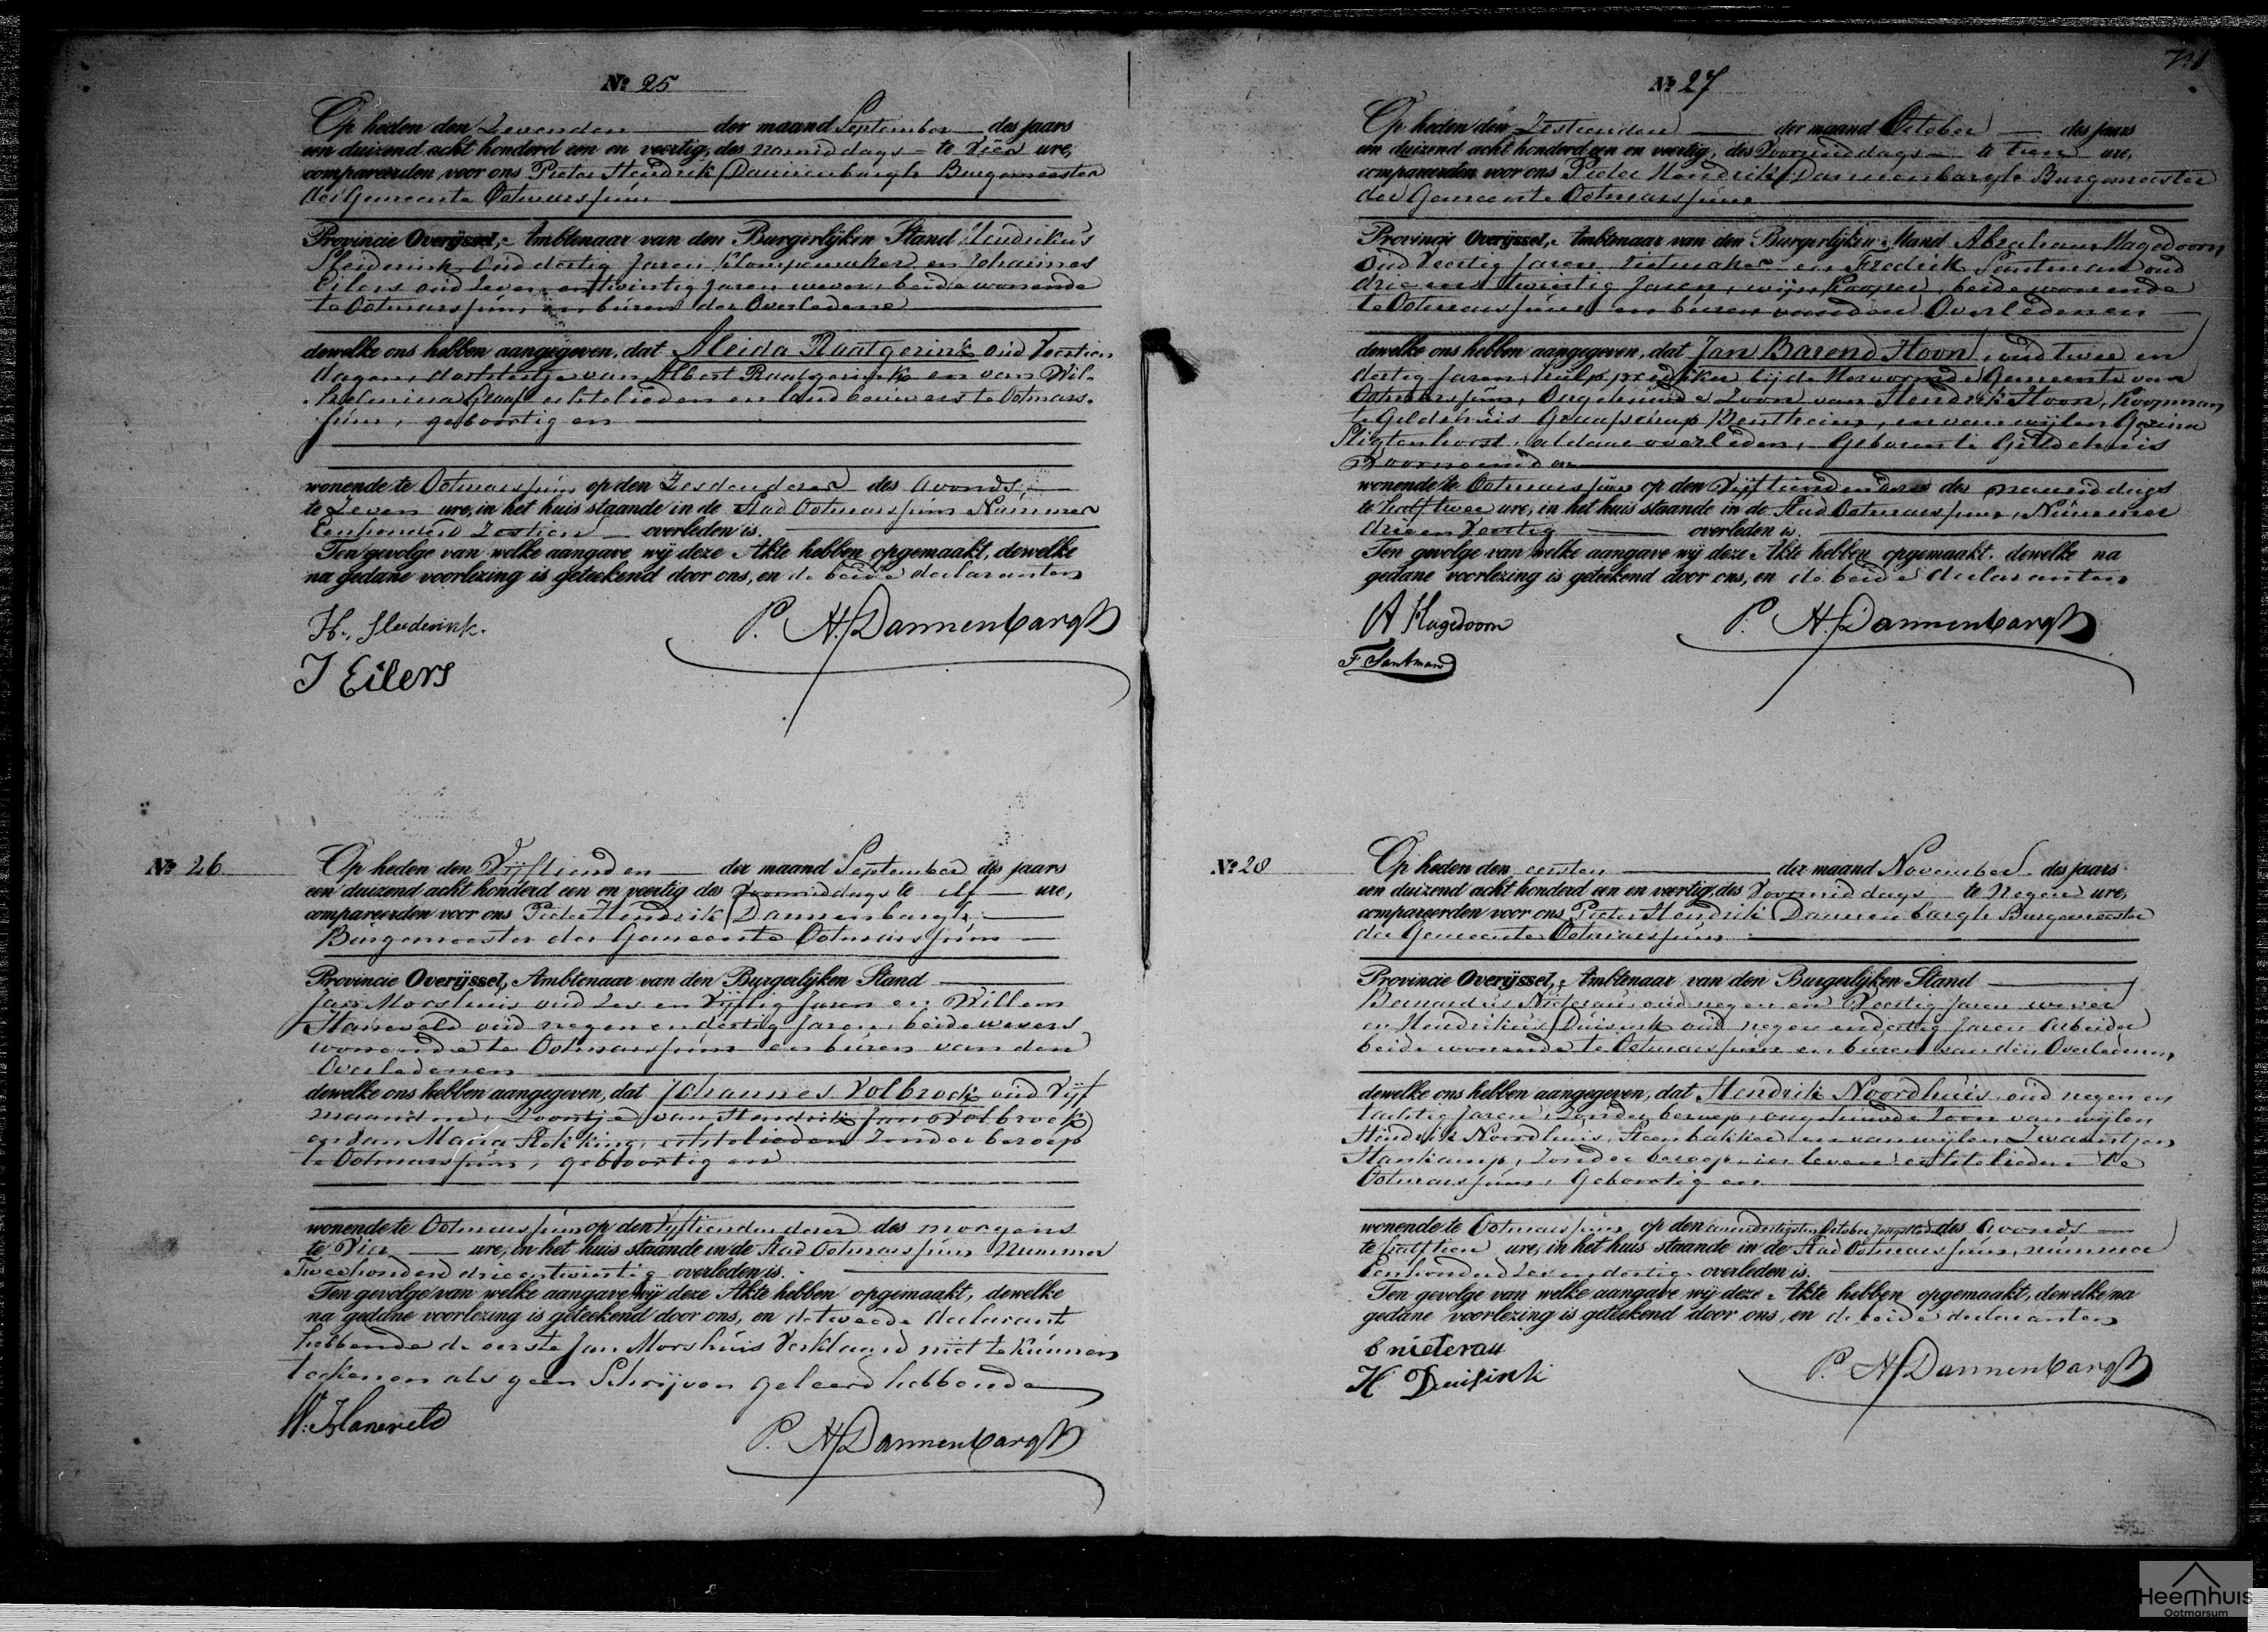 No 25
Op heden den Zevenden der maand September des jaars
een duizend acht honderd een en veertig, des namiddags te vier ure,
compareerden voor ons Pieter Hendrik Dannenbargh Burgemeester
der Gemeente Ootmarssum
Provincie Overijssel, Ambtenaar van den Burgerlijken Stand Hendrikus
Sleiderink oud dertig Jaren Klompemaker en Johannes
Eilers oud Zeven en twintig Jaren wever, beide wonende
te Ootmarssum, en buren der Overledene
dewelke ons hebben aangegeven, dat Aleida Raatgerink oud Veertien
dagen, dochtertje van Albert Raatgerink en van Wil-
helmina Graaf echtelieden en landbouwers te Ootmars-
sum, geboortig en
wonende te Ootmarssum op den Zesden dezer des avonds
te Zeven ure, in het huis staande in de Stad Ootmarssum Nummer
Eenhonderd Zestien overleden is.
Ten gevolge van welke aangave wij deze Akte hebben opgemaakt, dewelke
na gedane voorlezing is geteekend door ons, en de beide declaranten
H. Sleiderink.
P. H. Dannenbargh
J Eilers
No 26
Op heden den Vijftienden der maand September des jaars
een duizend acht honderd een en veertig des Voormiddags te elf ure,
compareerden voor ons Pieter Hendrik Dannenbargh
Burgemeester der Gemeente Ootmarssum
Provincie Overijssel, Ambtenaar van den Burgerlijken Stand
Jan Morshuis oud Zes en Vijftig Jaren en Willem
Haneveld oud negen en dertig Jaren, beide wevers
wonende te Ootmarssum en buren van den
Overledenen
dewelke ons hebben aangegeven, dat Johannes Volbroek oud Vijf
maanden, Zoontje van Hendrik Jan Volbroek
en van Maria Stokking, echtelieden Zonder beroep
te Ootmarssum, geboortig en
wonende te Ootmarssum op den Vijftienden dezer des morgens
te Vier ure, in het huis staande in de Stad Ootmarssum Nummer
Tweehonderd drie en twintig overleden is.
Ten gevolge van welke aangave wij deze Akte hebben opgemaakt, dewelke
na gedane voorlezing is geteekend door ons, en de tweede declarant
hebbende de eerste Jan Morshuis Verklaard niet te kunnen
teekenen als geen Schrijven geleerd hebbende
W. Haneveld
P. H. Dannenbargh
No 27
Op heden den Zestienden der maand October des jaars
een duizend acht honderd een en veertig, des Voormiddags te tien ure,
compareerden voor ons Pieter Hendrik Dannenbargh Burgemeester
der Gemeente Ootmarssum
Provincie Overijssel, Ambtenaar van den Burgerlijken Stand Abraham Hagedoorn
oud Veertig Jaren en Fredrik Santman oud
drie en twintig Jaren, wijnkooper, beide wonende
te Ootmarssum en buren van den Overledenen
dewelke ons hebben aangegeven, dat Jan Barend Stoon, oud twee en
dertig Jaren, hulpprediker bij de Hervormde Gemeente van
Ootmarssum, Ongehuwde Zoon van Hendrik Stoon, Koopman
te Gildehuis Graafschap Bentheim, en van wijlen Gezina
Sligtenhorst, aldaar overleden, Geboren te Gildehuis
Voornoemd en
wonende te Ootmarssum op den Vijftienden dezer des namiddags
te half twee ure, in het huis staande in de Stad Ootmarssum, Nummer
drie en Veertig overleden is.
Ten gevolge van welke aangave wij deze Akte hebben opgemaakt, dewelke na
gedane voorlezing is geteekend door ons, en de beide declaranten
A Hagedoorn
P. H. Dannenbargh
F Santman
No 28
Op heden den eersten der maand November des jaars
een duizend acht honderd een en veertig, des Voormiddags te Negen ure,
compareerden voor ons Pieter Hendrik Dannenbargh Burgemeester
der Gemeente Ootmarssum
Provincie Overijssel, Ambtenaar van den Burgerlijken Stand
Bernardus Nieterau, oud negen en Veertig Jaren wever
en Hendrikus Duisink oud negen en dertig Jaren Arbeider
beide wonende te Ootmarssum en buren van den Overledenen,
dewelke ons hebben aangegeven, dat Hendrik Noordhuis, oud negen en
tachtig Jaren, Zonder beroep, ongehuwde Zoon van wijlen
Hendrik Noordhuis, Steenbakker en van wijlen Zwaantjen
Hankamp, Zonder beroep in leven echtelieden te
Ootmarssum, Geboortig en
wonende te Ootmarssum op den eenendertigsten October Jongstleden des Avonds
te half tien ure, in het huis staande in de Stad Ootmarssum, nummer
Eenhonderd Zevendertig overleden is.
Ten gevolge van welke aangave wij deze Akte hebben opgemaakt, dewelke na
gedane voorlezing is geteekend door ons, en de beide declaranten
B nieterau
P. H. Dannenbargh
H Duisink
Heemhuis
Ootmarsum